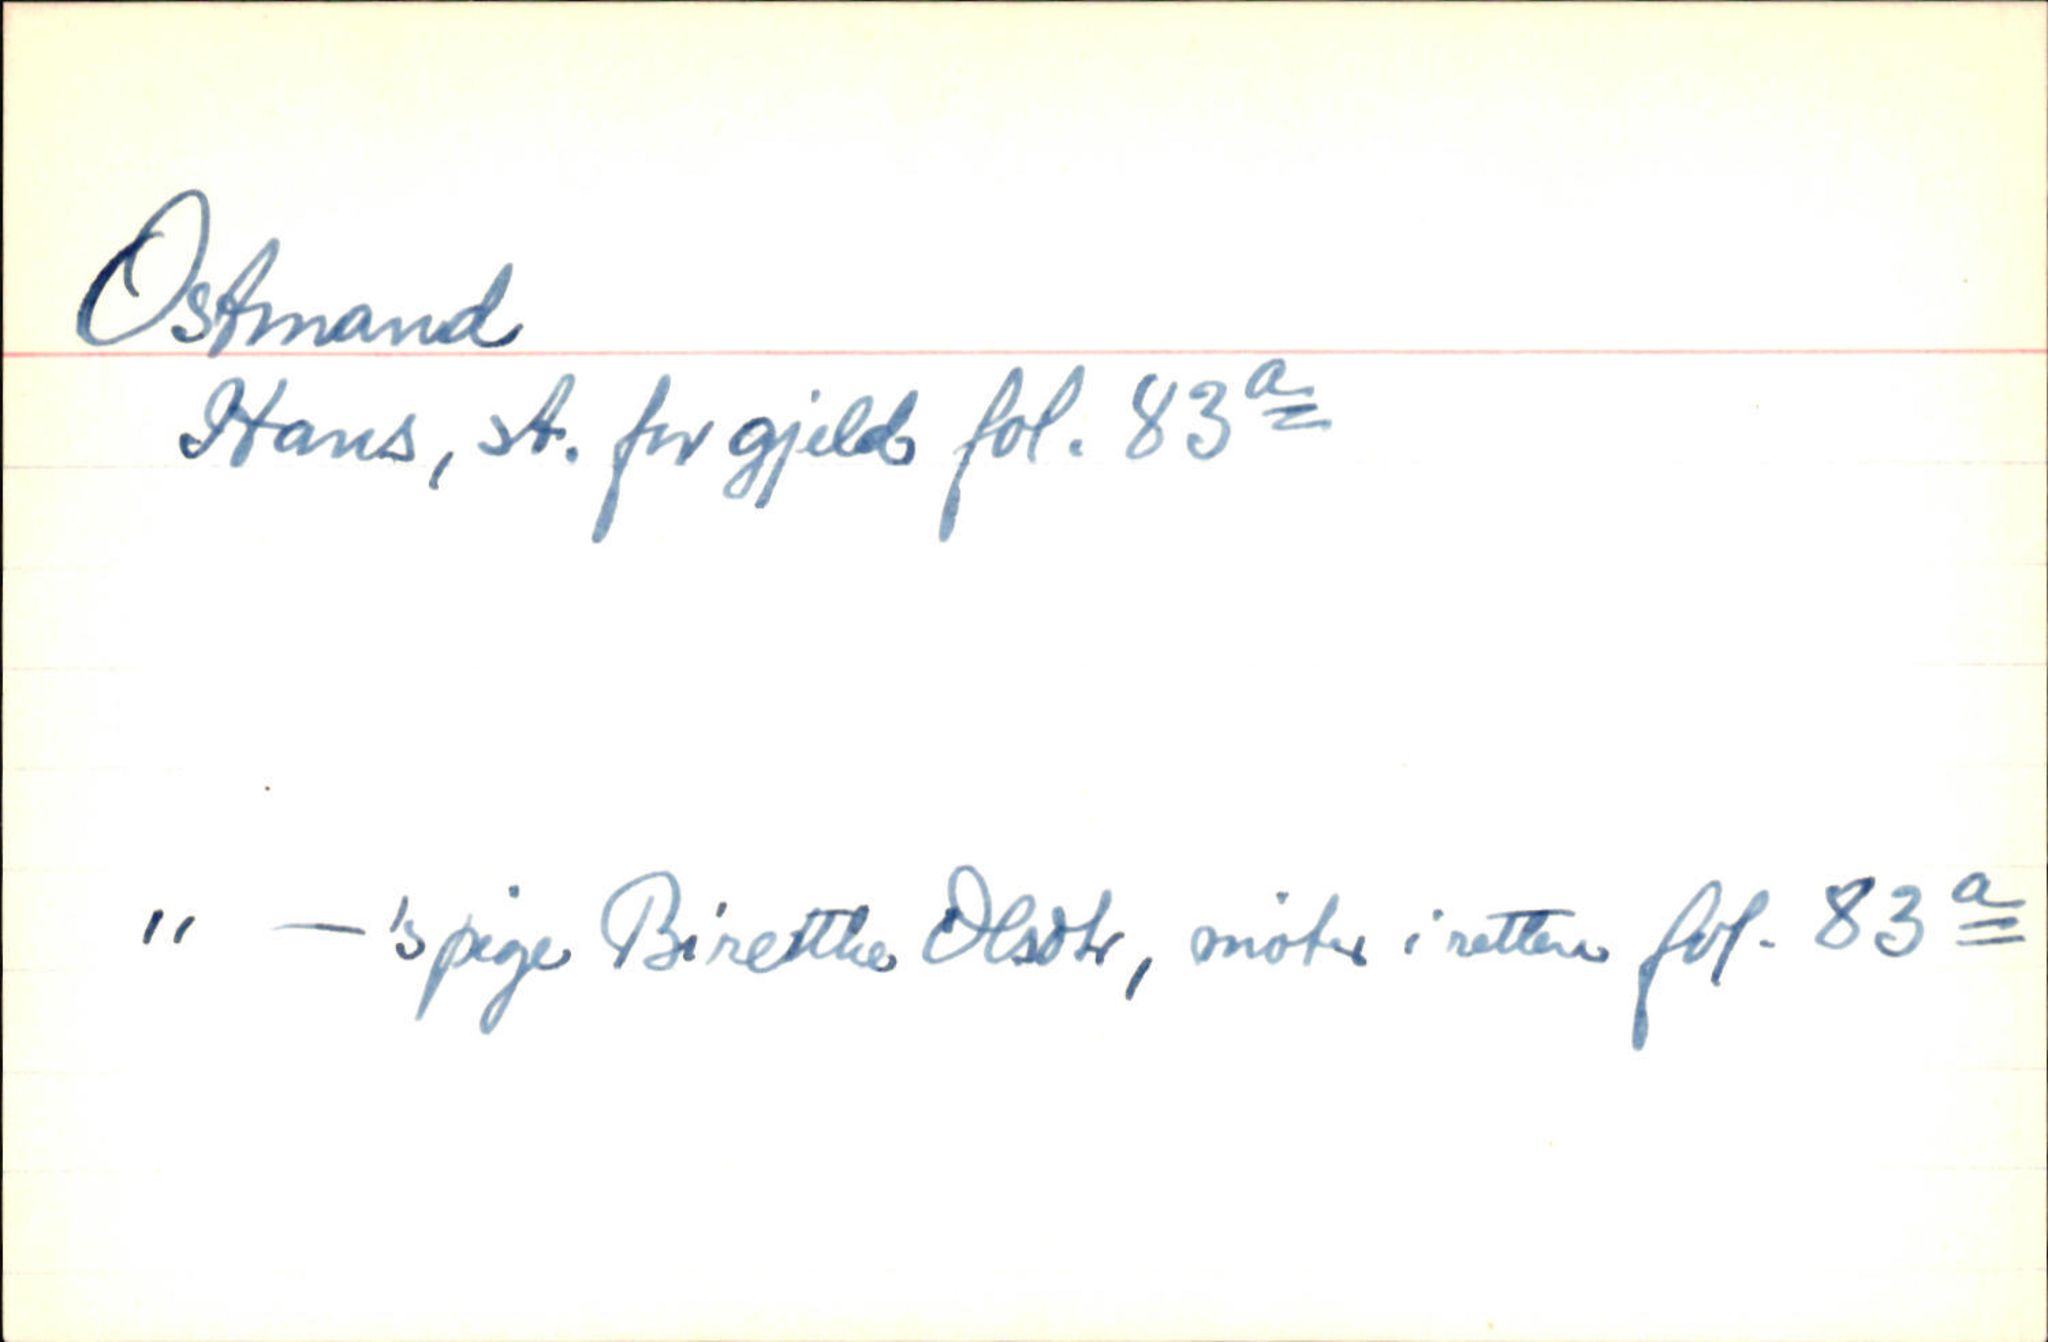 Ostmand
Hans, st. for gjeld fol. 83a
" — 's pige Birethe Olsdtr, möter i retten fol. 83a